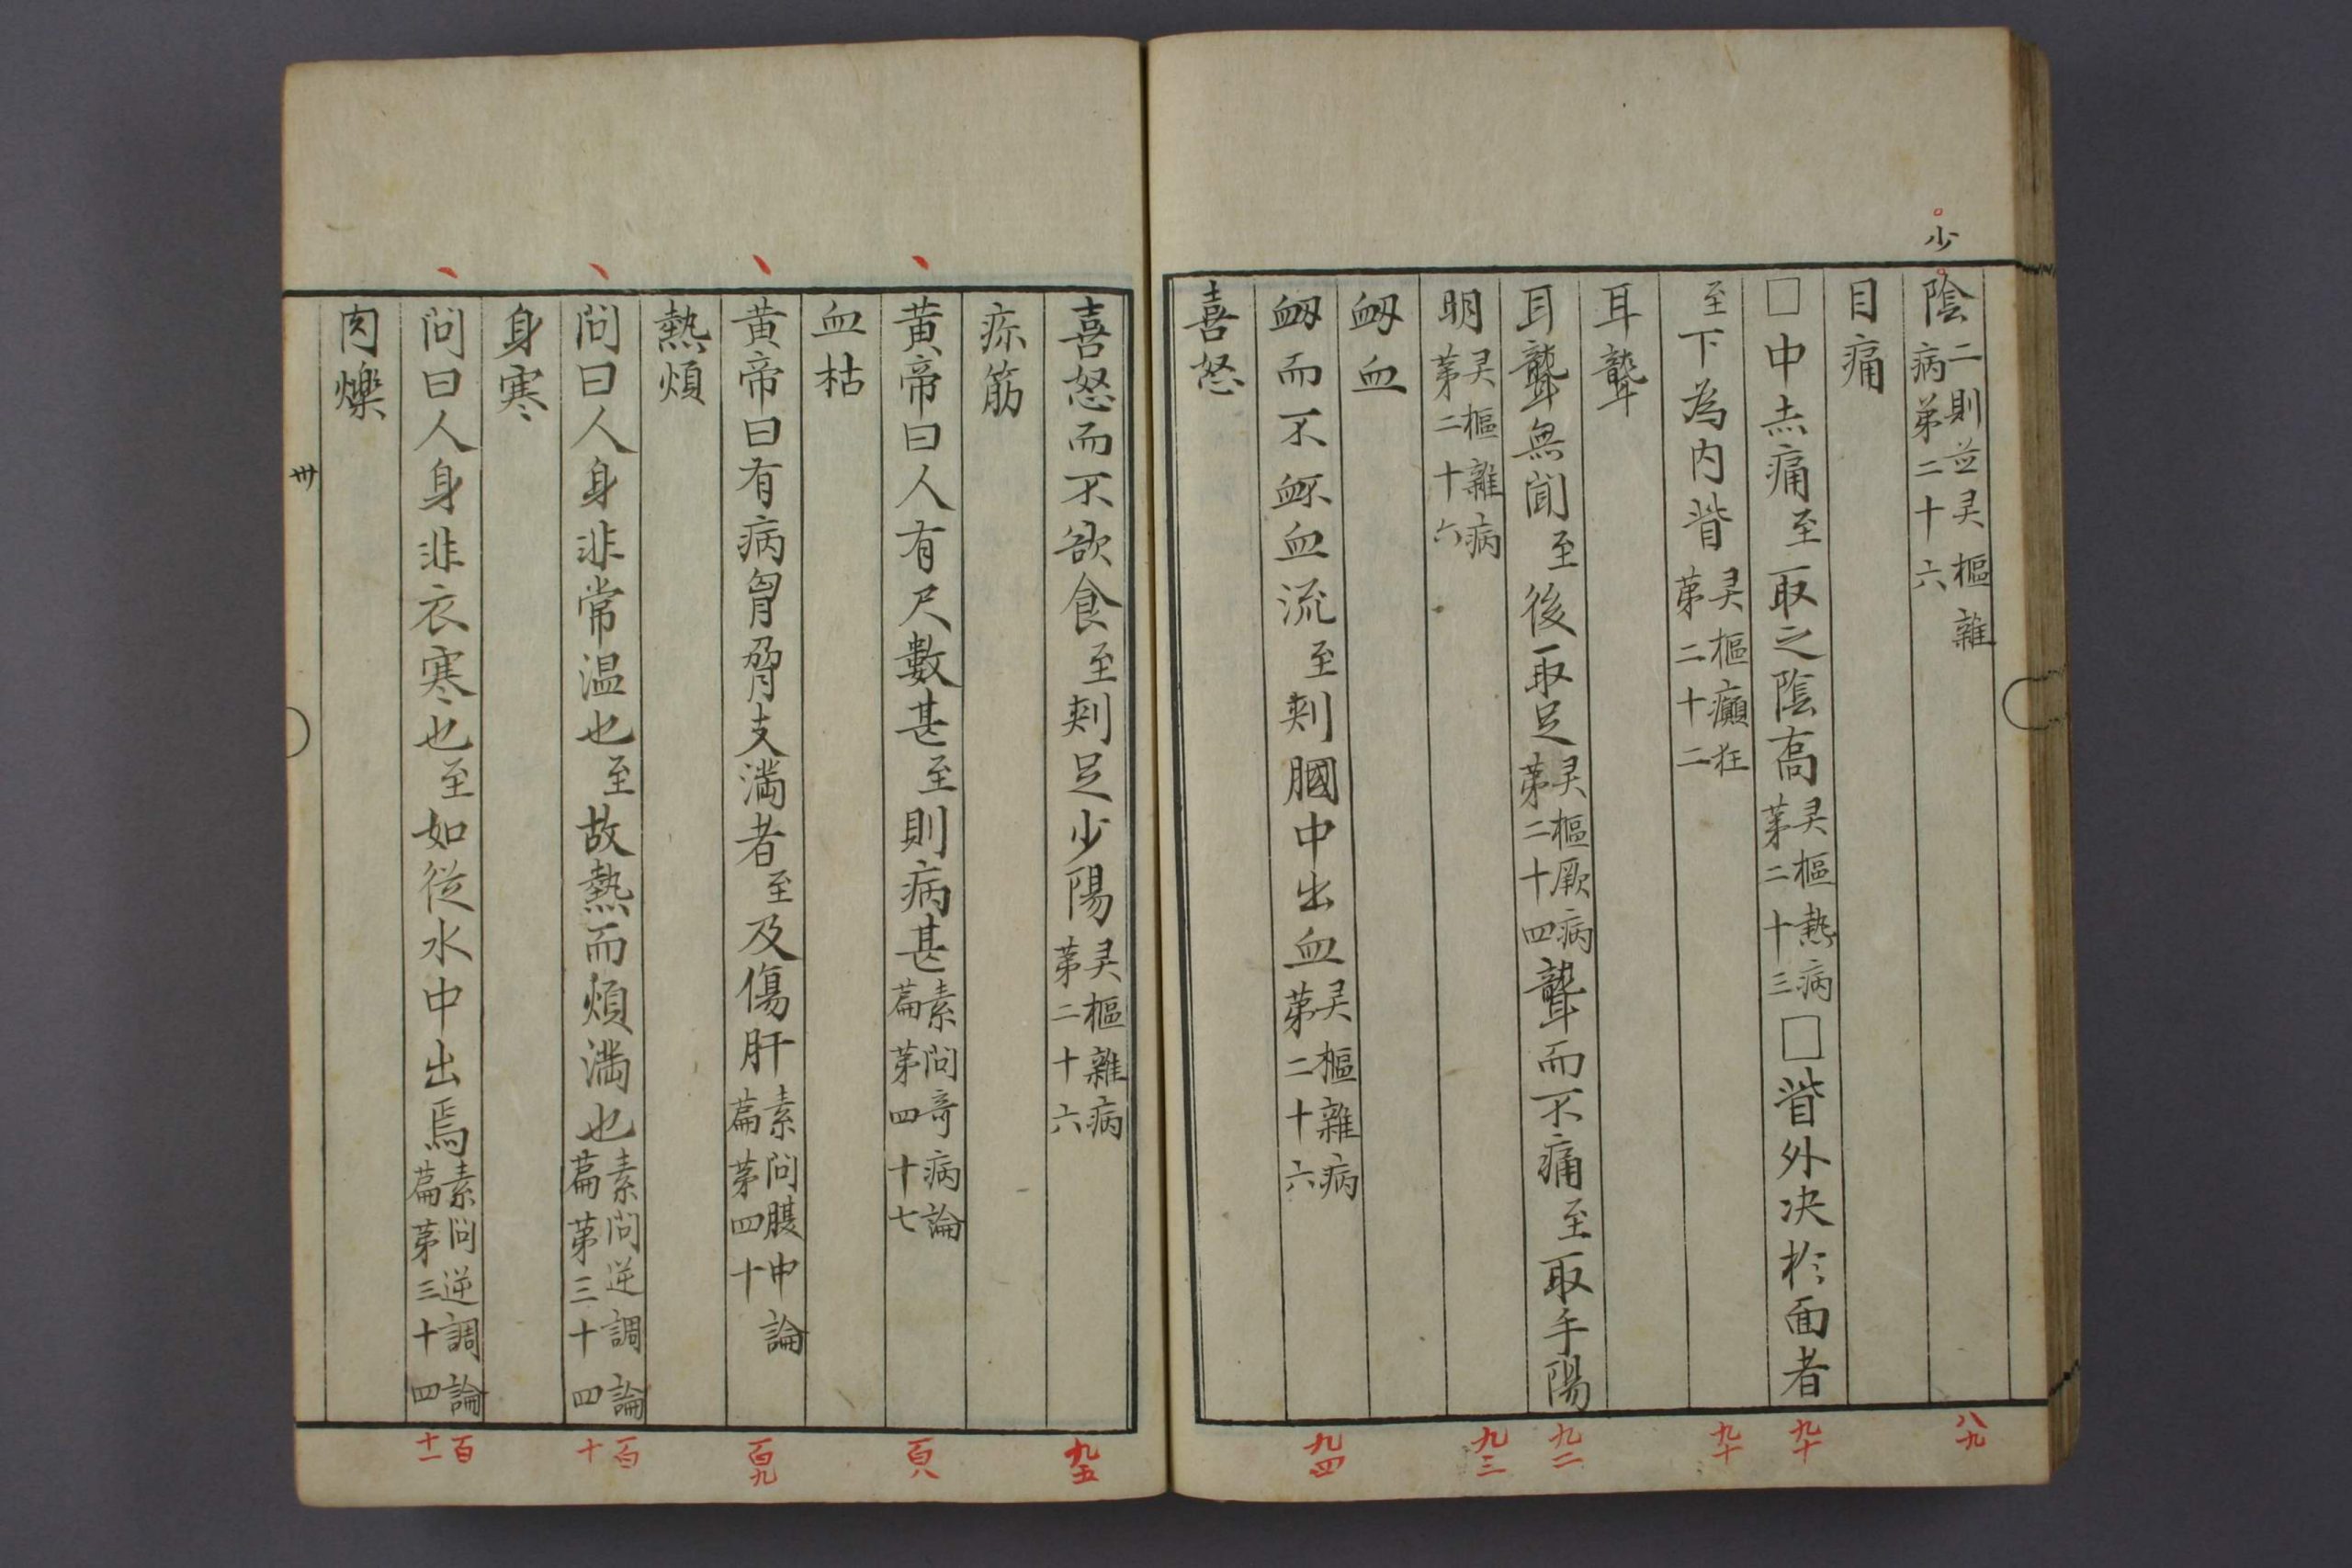 少
陰二則並灵樞雜病第二十六
八九
目痛
□中赤痛至取之陰高灵樞熱病第二十三□眥外决於面者
九十
至下為内眥灵樞癲狂第二十二
九十
耳聾
耳聾無聞至後取足灵樞厥病第二十四聾而不痛至取手陽
九二
明灵樞雜病第二十六
九三
衂血
衂而不衃血流至刺膕中出血灵樞雜病第二十六
九四
喜怒
喜怒而不欲食至刺足少陽灵樞雜病第二十六
九五
疢筋
黄帝曰人有尺數甚至則病甚素問奇病論篇第四十七
百八
血枯
黄帝曰有病胷脅支満者至及傷肝素問腹中論篇第四十
百九
熱煩
問曰人身非常温也至故熱而煩満也素問逆調論篇第三十四
百十
身寒
問曰人身非衣寒也至如從水中出焉素問逆調論篇第三十四
百十一
肉爍
卅